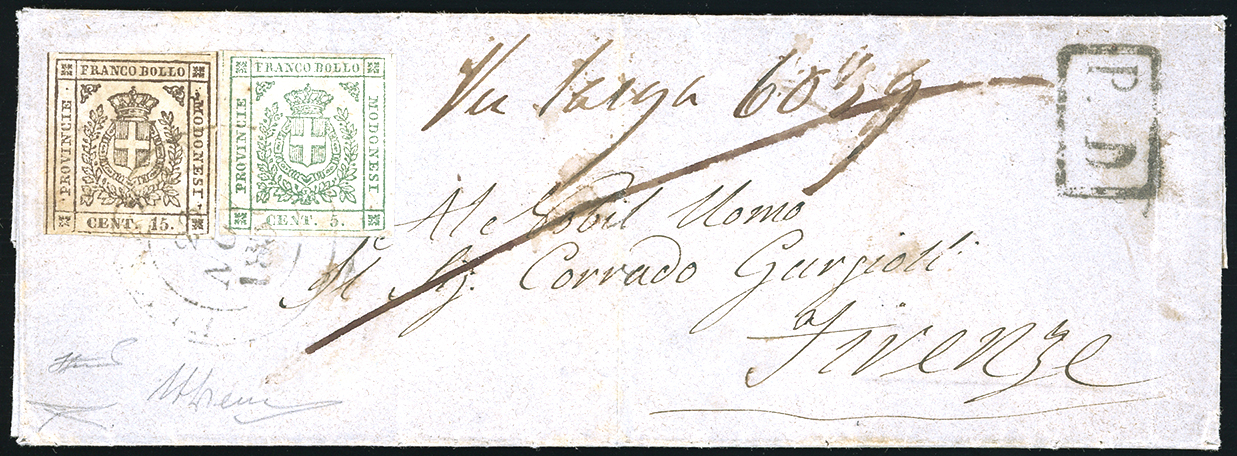 FRANCO BOLLO
PROVINCIE
MODONESI
CENT. 15.
FRANCO BOLLO
PROVINCIE
MODONESI
CENT. 5.
Via larga 6039
P. D.
Al Nobil Uomo
Il Sg. Corrado Gargiolli
Firenze
NOV